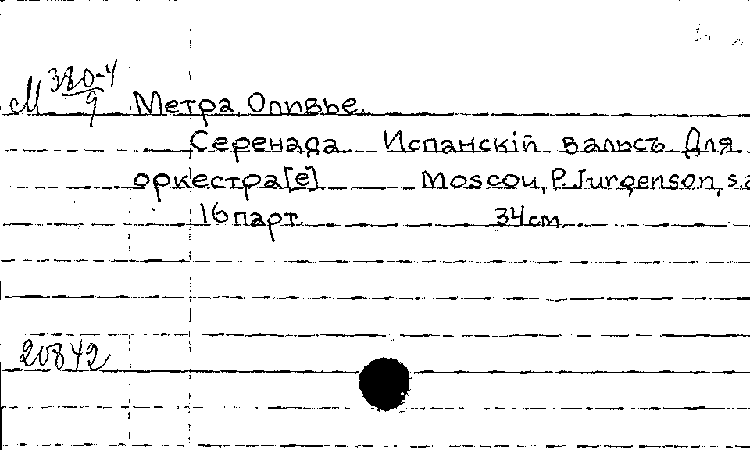 М 380-4/9 Метра, Оливье.
Серенада. Испанскiй вальсъ для
оркестра[е] Moscou, P. Jurgenson, s.a
16 парт. 34 см.
20842